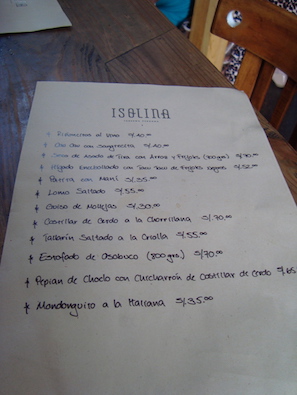 ISOLINA
TABERNA PERUANA
* Riñoncitos al Vino S/.40.00
* Cau Cau con Sangrecita S/.40.00
* Seco de Asado de Tira con Arroz y Frijoles (800grs) S/.70.00
* Hígado Encebollado con Tacu Tacu de Frijoles Negros S/.52.00
* Patita con Maní S/.35.00
* Lomo Saltado S/.55.00
* Guiso de Mollejas S/.30.00
* Costillar de Cerdo a la Chorrillana S/.70.00
* Tallarín Saltado a la Criolla S/.55.00
* Estofado de Osobuco (800grs) S/70.00
* Pepian de Choclo con Chicharrón de Costillar de Cerdo S/.65
* Mondonguito a la Italiana S/.35.00